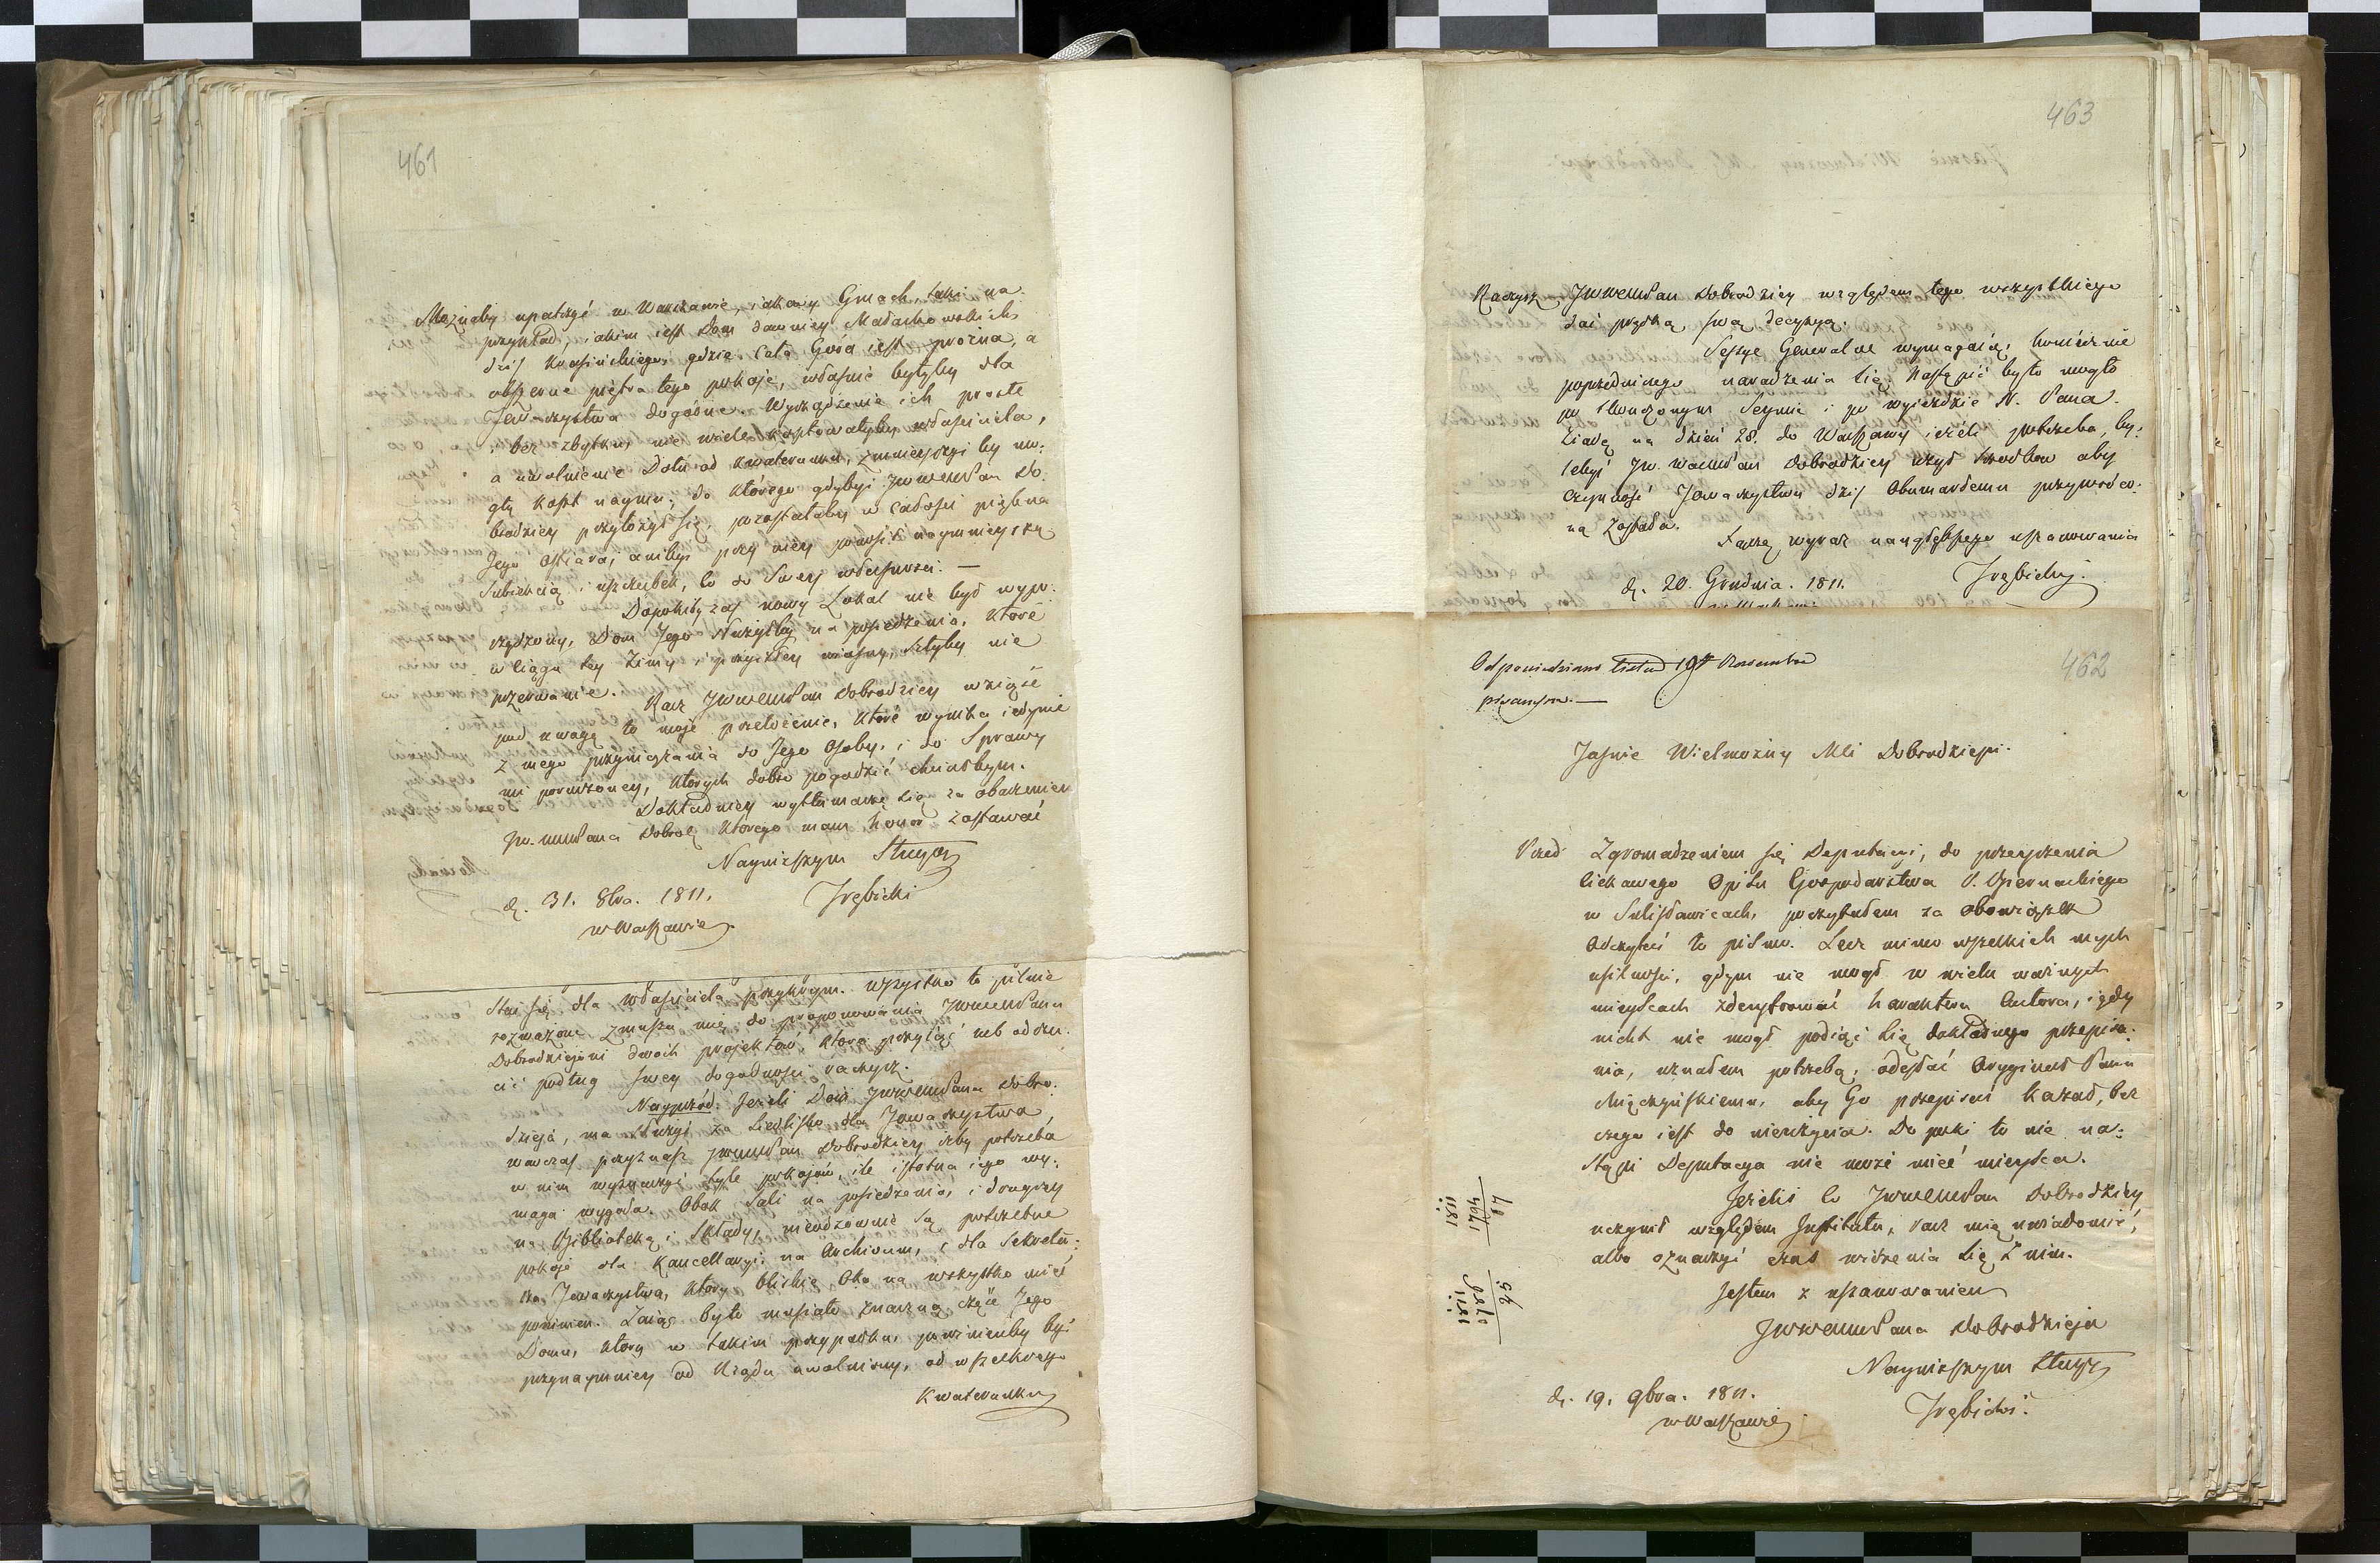 461
Możnaby upatrzyć w Warszawie, iakowy Gmach, taki na
przykład, iakim iest Dom dawniey Małachowskich,
dziś Krasińskiego, gdzie cała Góra iest prózna, a
obszerne piętra tego pokoje, właśnie byłyby dla
Towarzystwa dogodne. Wyrządzenie ich proste
i bez zbytku, nie wiele kosztowałyby właściciela,
a uwolnienie Dołu od kwaterunku, zmnieyszyć by mo:
gły koszt naymu; do którego gdybyś JWWMPan Do:
brodziey przyłożył się, pozostałaby w całości piękna
Jego ofiara, aniby przy niey ponosił naymnieyszą
subiekcią i uszczerbek, co do Swey własności. —
Dopokiby zaś nowy Lokal nie był wypo:
rządzony, Dom Jego służyłby na posiedzenia, które
w ciągu tey zimy i przyszłey wiosny, szłyby nie
przerwanie.
Racz JWWMPan Dobrodziey wziąść
pod uwagę to moje przełożenie, które wynika iedynie
z mego przywiązania do Jego Osoby, i do Sprawy
mi poruczoney, których dobro pogodzić chciałbym.
Dokładniey wytłumaczę się za obaczeniem
JW. WMPana Dobrod. którego mam honor zostawać
Nayniższym Sługą
d. 31. 8bra. 1811. Trębicki
w Warszawie
stać się dla właściciela przykrym. Wszystko to pilnie
rozważone zmusza mię do proponowania JWWMPanu
Dobrodziejowi dwóch projektów, które przyiąć lub odrzu:
cić podług swey dogodności raczysz.
Nayprzód. Jeżeli Dom JWWMPana Dobro:
dzieja, ma służyć za Siedlisko dla Towarzystwa,
wówczas przyznasz JWWMPan Dobrodziey iżby potrzeba
w nim wyznaczyć tyle pokojów, ile istotna iego wy:
maga wygoda. Obok Sali na posiedzenia, i drugiey
na Bibliotekę i Składy, nieodzownie są potrzebne
pokoje dla Kancellaryi, na Archivum, i dla Sekreta:
rza Towarzystwa, który bliskie Oko na wszystko mieć
powinien. Zaiąć by to musiało znaczną część Jego
Domu, który w takim przypadku, powinienby być
przynaymniey od Rządu uwolniony, od wszelkiego
Kwaterunku
463
Raczysz JWWMPan Dobrodziey względem tego wszystkiego
dać prędką swą decyzyą.
Sessye Generalne wymagaią, koniecznie
poprzedniego naradzenia się. Nastąpić by to mogło
po skończonym Seymie i po wyieździe N. Pana.
Ziadę na dzień 28. do Warszawy ieżeli potrzeba, by:
lebyś JW. WMPan Dobrodziey użył środków aby
czynność Towarzystwa dziś obumarłemu przywróco:
ną została.
Łączę wyraz naygłębszego uszanowania
d. 20. Grudnia. 1811. Trębicki.
Odpowiedziano listem 19t Novembra
pisanym. —
462
Jaśnie Wielmożny Mci Dobrodzieju.
Przed Zgromadzeniem się Deputacyi, do przeyrzenia
ciekawego Opisu Gospodarstwa P. Biernackiego
w Sulisławicach, poczytałem za obowiązek
odczytać to pismo. Lecz mimo wszelkich mych
usilności, gdym nie mogł w wielu ważnych
mieyscach zdeszyfrować karakteru Autora, i gdy
nicht nie mogł podiąć się dokładnego przepisa:
nia, uznałem potrzebę, odesłać Oryginał Panu
Mięczyńskiemu, aby Go przepisać kazał, bez
czego iest do nieużycia. Do puki to nie na:
stąpi Deputacya nie może mieć mieysca.
Jeżeliś co JWWMPan Dobrodziey
uczynił względem Instytutu, racz mię uwiadomić,
albo oznaczyć czas widzenia się z nim.
Jestem z uszanowaniem
JWWMPana Dobrodzieja
Nayniższym Sługą
d. 19. 9bra. 1811. Trębicki.
w Warszawie
1811
1764
47